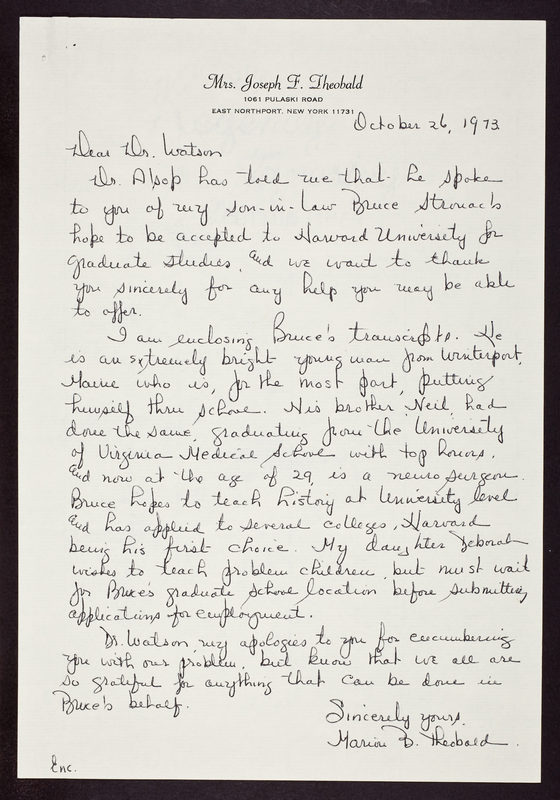 Mrs. Joseph F. Theobald
1061 PULASKI ROAD
EAST NORTHPORT, NEW YORK 11731
October 26, 1973
Dear Dr. Watson
Dr. Alsop has told me that he spoke
to you of my son-in-law Bruce Stronach's
hope to be accepted to Harvard University for
graduate studies, and we want to thank
you sincerely for any help you may be able
to offer.
I am enclosing Bruce's transcripts. He
is an extremely bright young man from Winterport,
Maine who is, for the most part, putting
himself thru school. His brother Neil, had
done the same, graduating from the University
of Virginia Medical School with top honors,
and now at the age of 29, is a neuro surgeon.
Bruce hopes to teach history at University level
and has applied to several colleges, Harvard
being his first choice. My daughter Deborah
wishes to teach problem children, but must wait
for Bruce's graduate school location before submitting
applications for employment.
Dr. Watson, my apologies to you for encumbering
you with our problem, but know that we all are
so grateful for anything that can be done in
Bruce's behalf.
Sincerely yours,
Marion B. Theobald.
Enc.